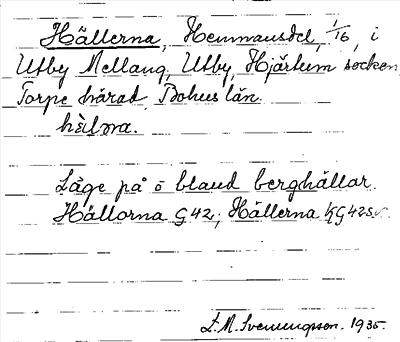 Hällerna, Hemmansdel, 1/16, i
Utby Mellang, Utby, Hjärtum socken,
Torpe härad, Bohus län.
hälṇa.
Läge på o bland berghällar.
Hällorna G42; Hällerna KG42sv.
F.M. Svenungsson. 1935.